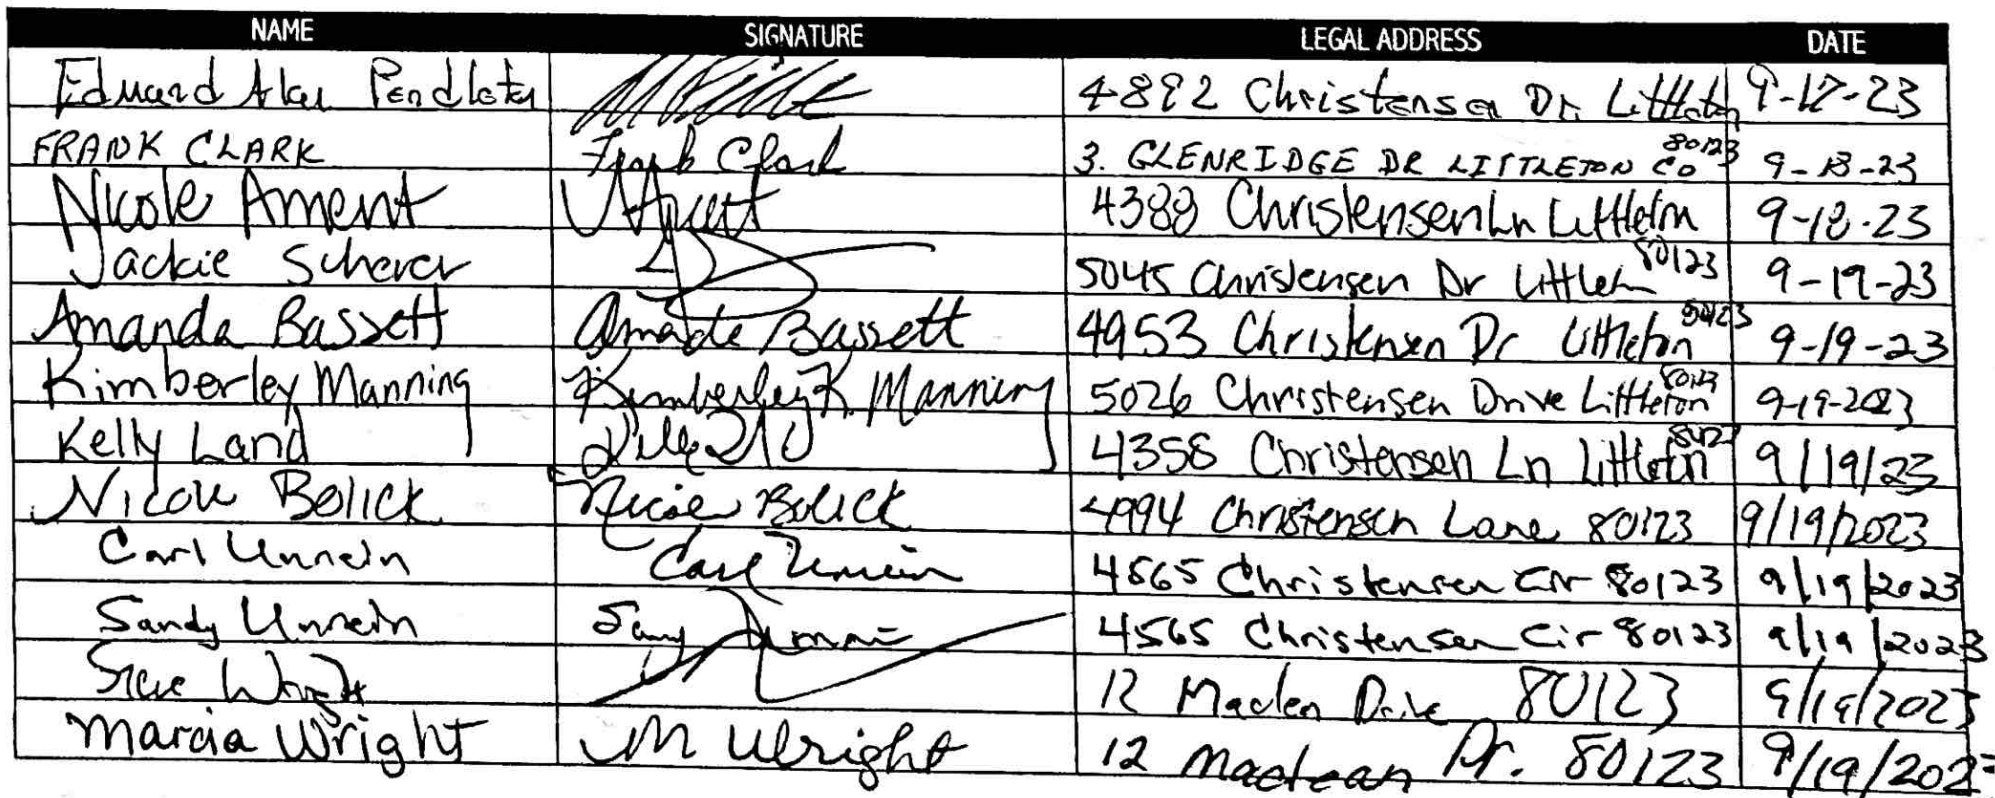 NAME SIGNATURE LEGAL ADDRESS DATE
Edward Alan Pendleton 4892 Christensen Dr. Littleton 9-17-23
FRANK CLARK Frank Clark 3. GLENRIDGE DR LITTLETON CO 80123 9-18-23
Nicole Ament 4388 Christensen Ln Littleton 9-18-23
Jackie Scherer 5045 Christensen Dr Littleton 80123 9-19-23
Amanda Bassett Amanda Bassett 4953 Christensen Dr Littleton 80123 9-19-23
Kimberley Manning Kimberley K. Manning 5026 Christensen Drive Littleton 80123 9-19-2023
Kelly Land 4358 Christensen Ln Littleton 80123 9/19/23
Nicole Bolick Nicole Bolick 4994 Christensen Lane 80123 9/19/2023
Carl Unrein Carl Unrein 4565 Christensen Cir 80123 9/19/2023
Sandy Unrein 4565 Christensen Cir 80123 9/19/2023
Steve Wright 12 Maclean Drive 80123 9/19/2023
Marcia Wright M Wright 12 Maclean Dr. 80123 9/19/202